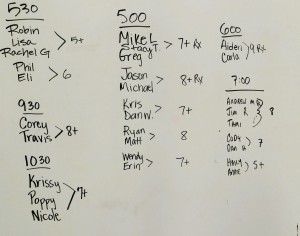 530
Robin
Lisa > 5+
Rachel G
Phil
Eli > 6
930
Corey
Travis > 8+
1030
Krissy
Poppy > 7+
Nicole
500
Mike L
Stacy T. > 7+ Rx
Greg
Jason
Michael > 8+ Rx
Kris
Dan W. > 7+
Ryan
Matt > 8
Wendy
Erin > 7+
600
Alderi
Carla > 9 Rx
7:00
Andrew M
Jim R > 8
Tami
Cody
Dan U > 7
Harry
Anne > 5+